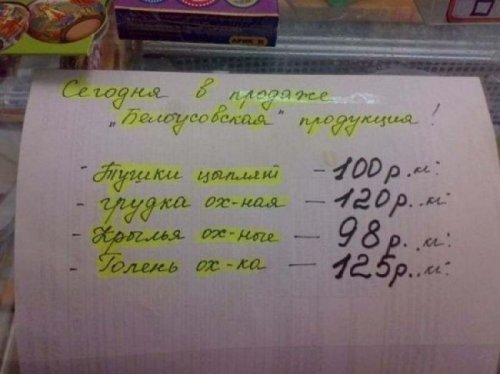 Сегодня в продаже
„Белоусовская" продукция!
- Тушки цыплят - 100р. кг.
- грудка ох-ная - 120р. кг.
- Крылья ох-ные - 98р. кг.
- Голень ох-ка - 125р. кг.